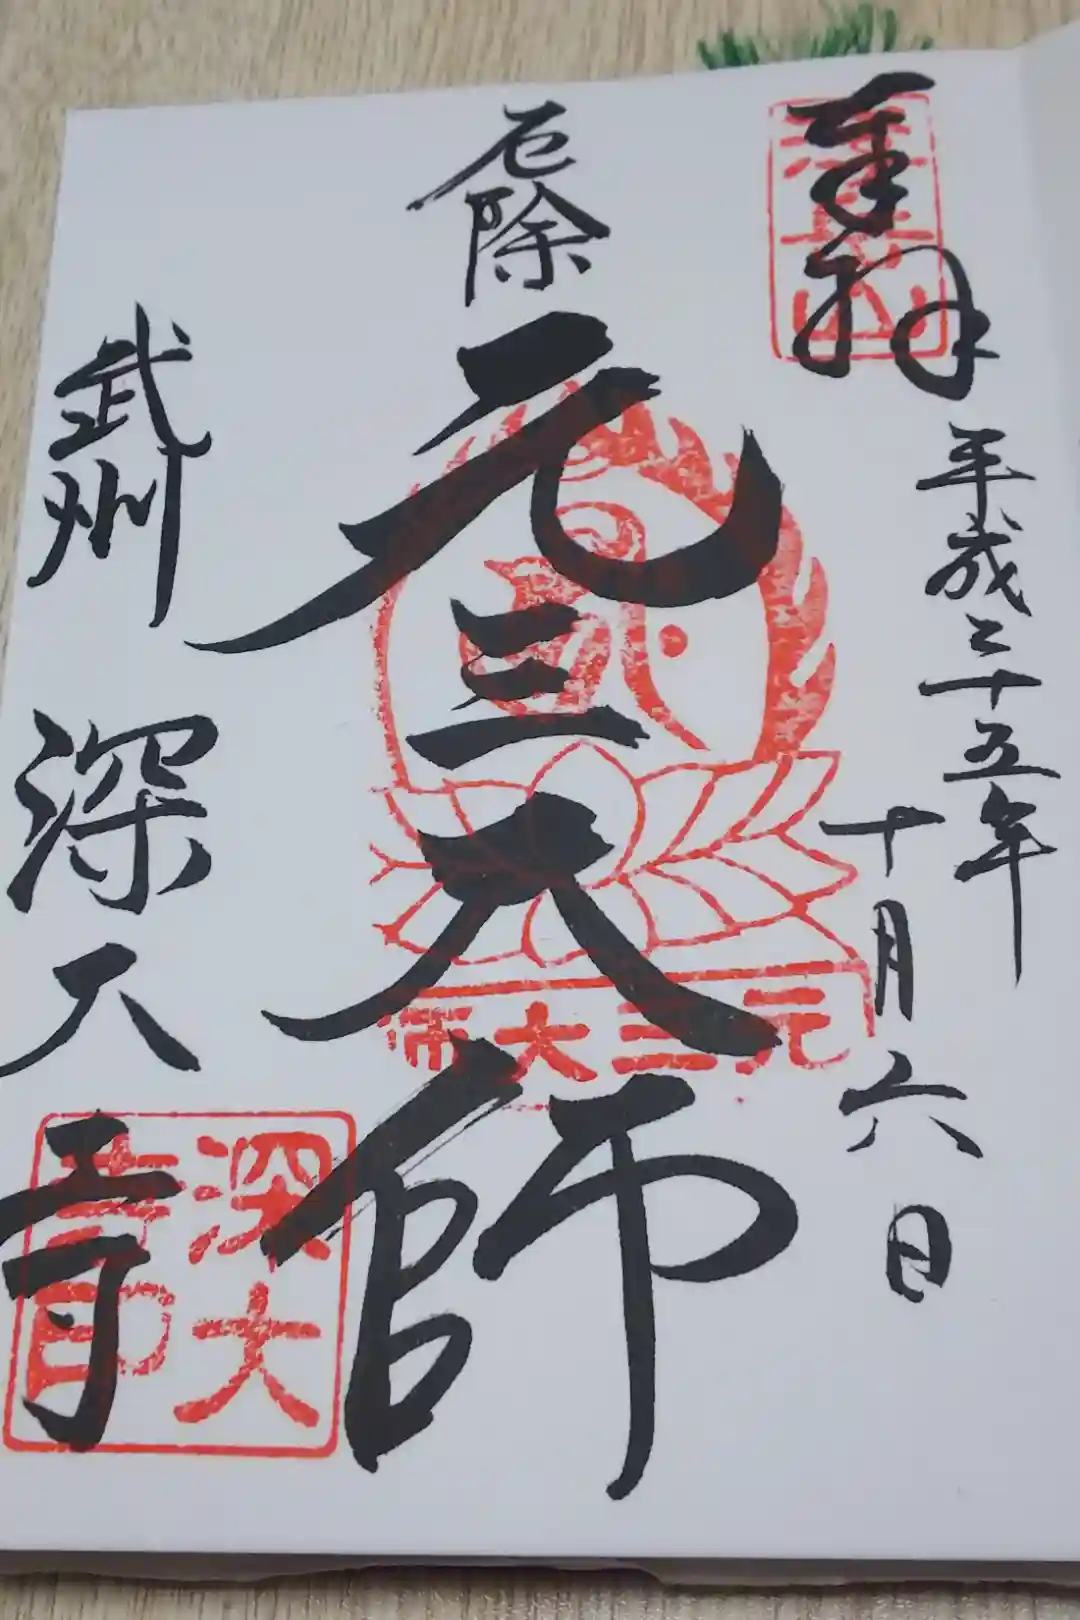 奉拝
平成二十五年
十月六日
厄除
元三大師
武州
深大寺
浮岳山
元三大師
深大
寺印